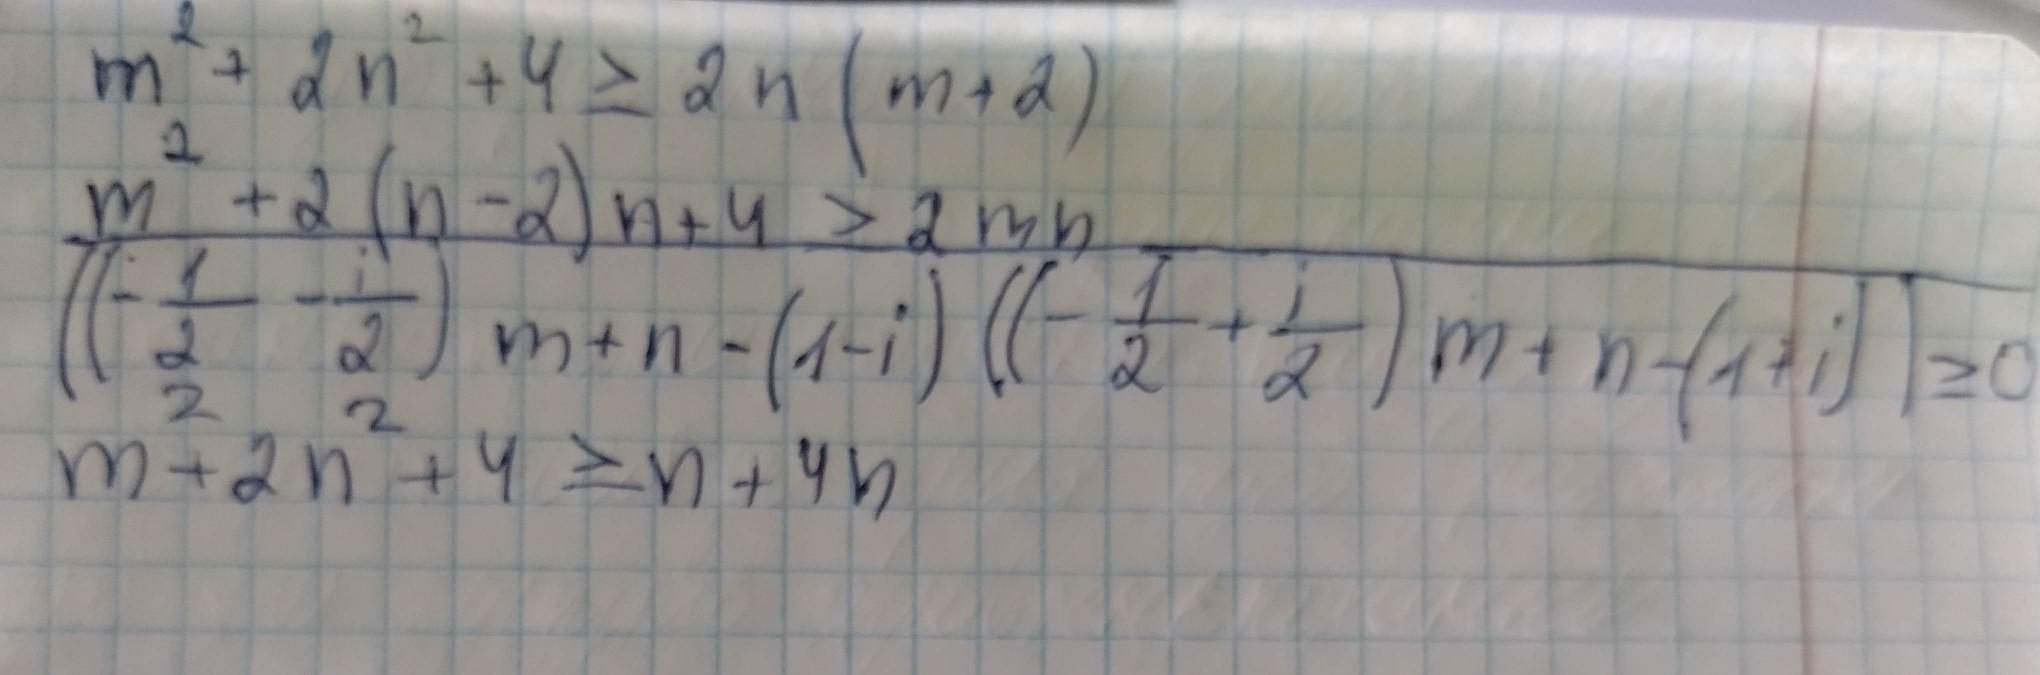 m² + 2n² + 4 ≥ 2n(m+2)
m² + 2(n-2)n+4 > 2mn
((-1/2 - i/2)m+n-(1-i)((-1/2+i/2)m+n-(1+i)) ≥ 0
m²+2n²+4 ≥ n+4n